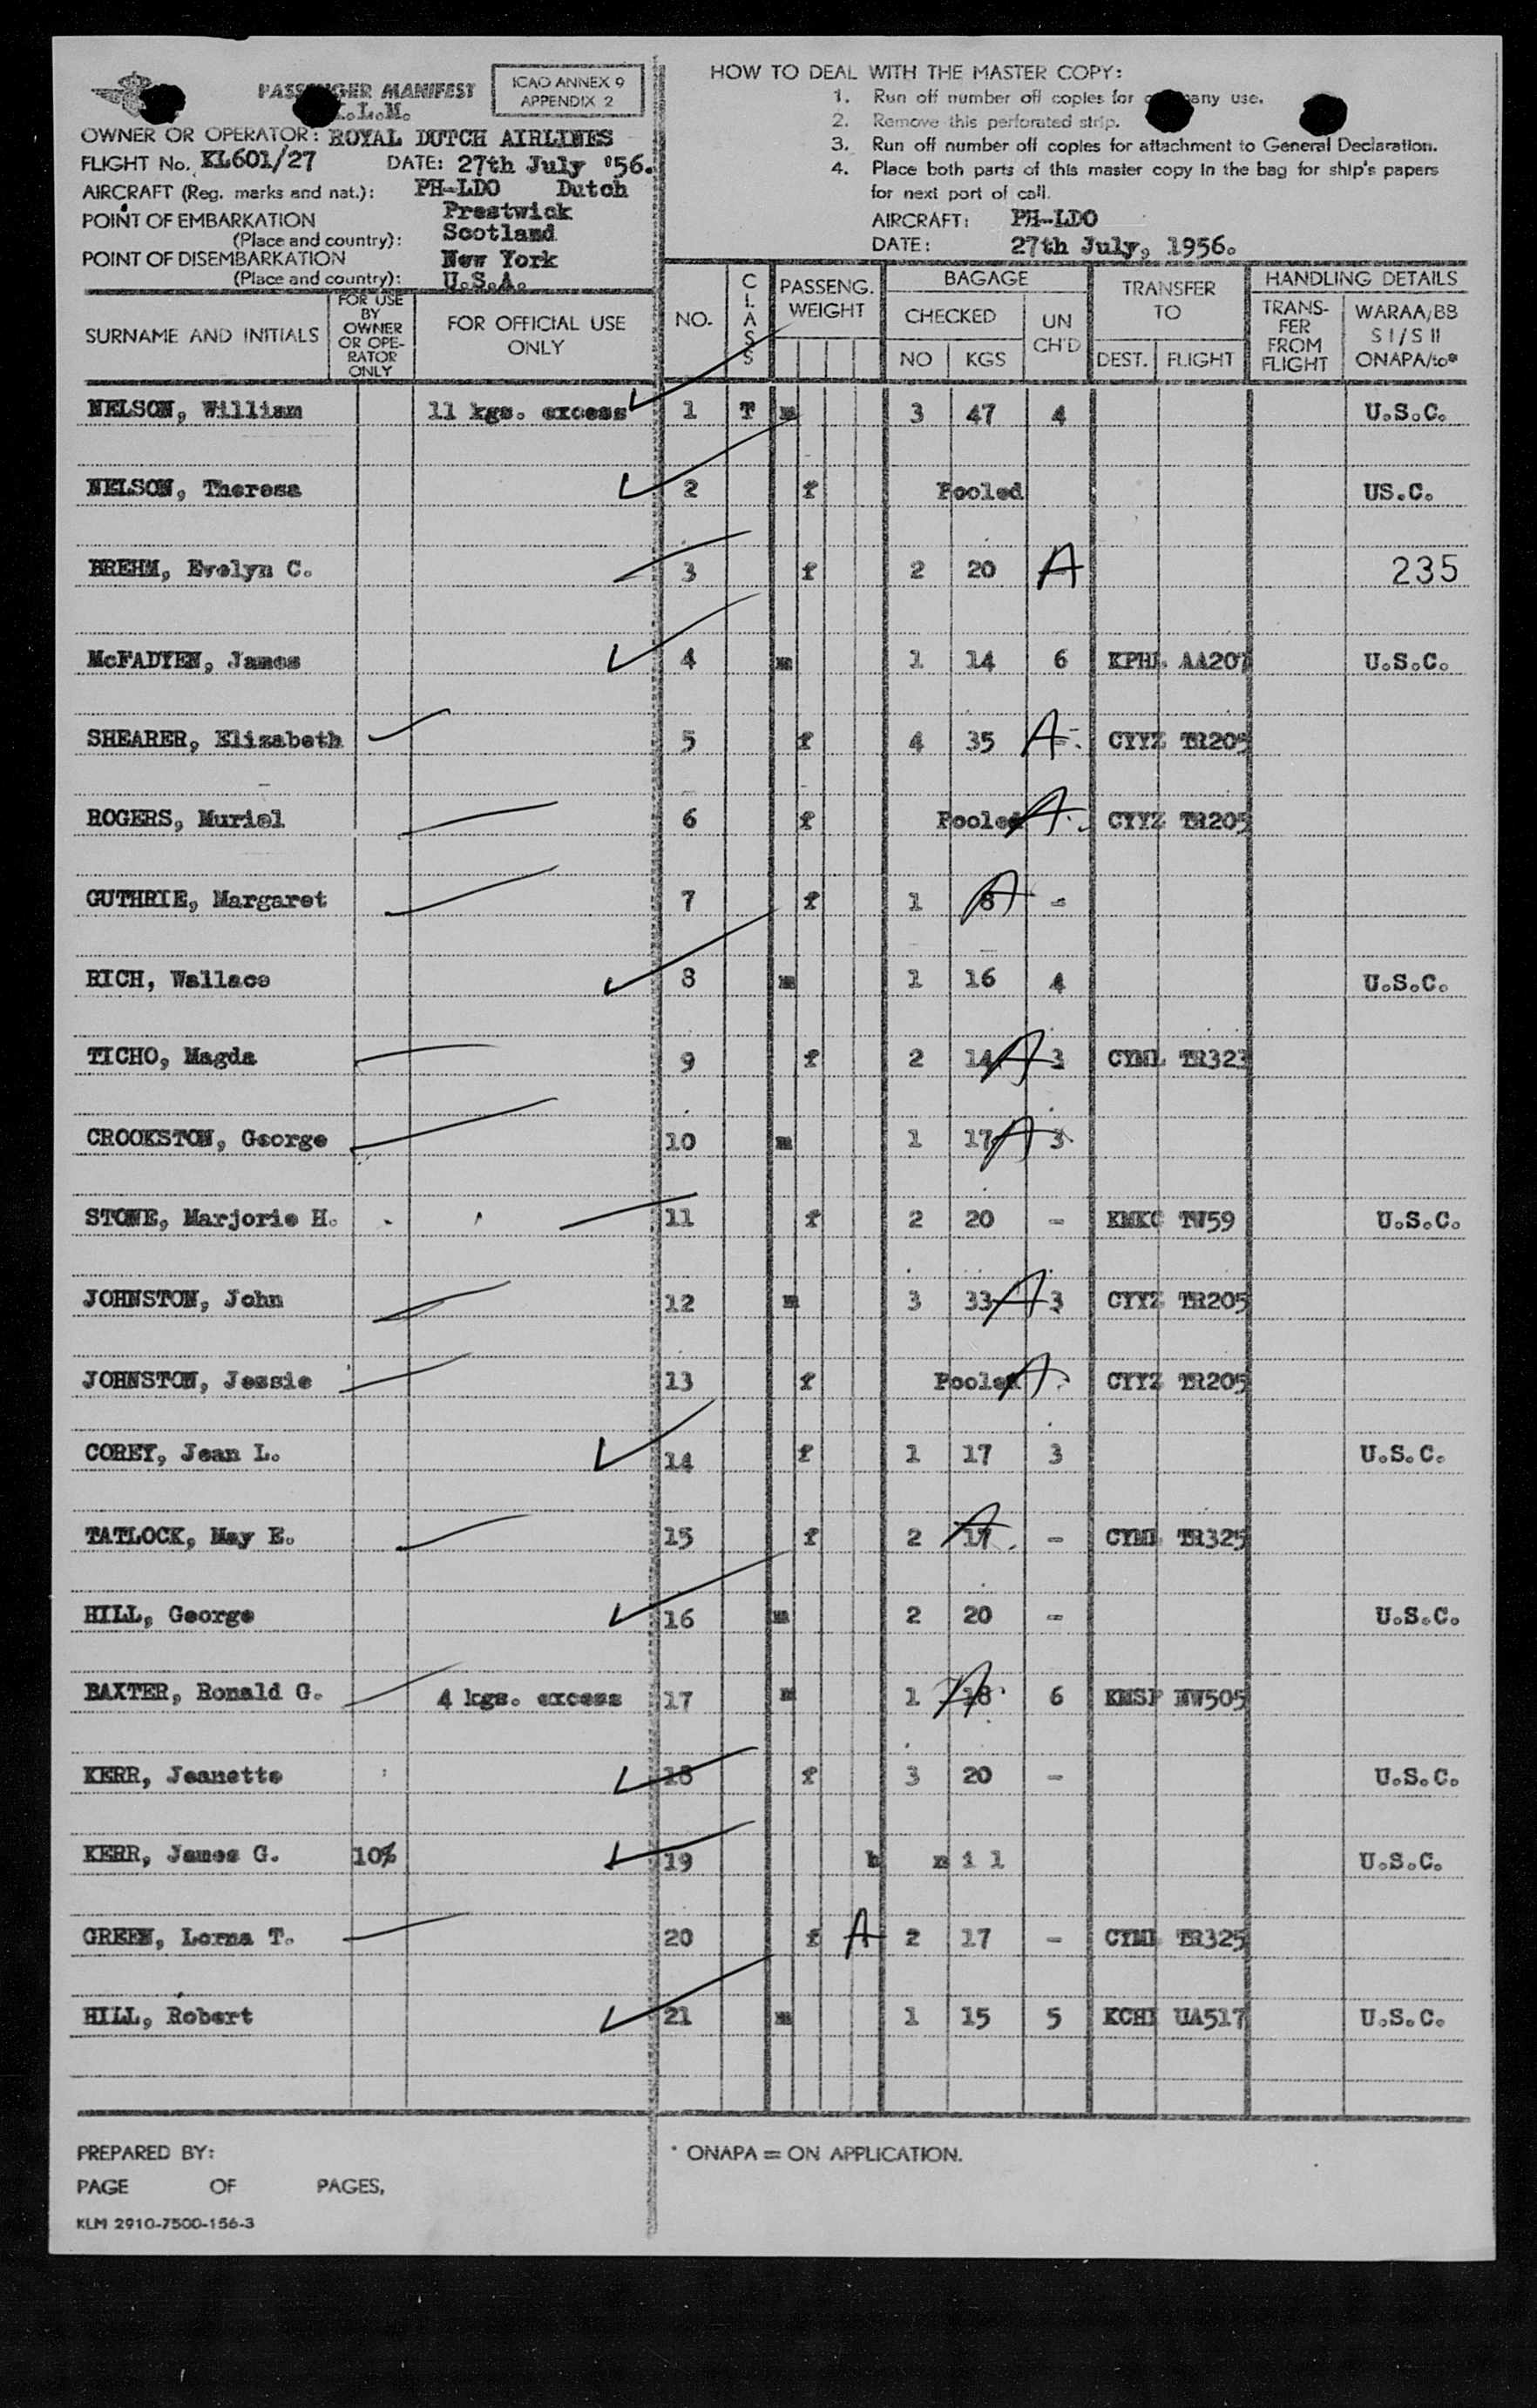 PASSENGER MANIFEST
K.L.M.
ICAO ANNEX 9
APPENDIX 2
OWNER OR OPERATOR: ROYAL DUTCH AIRLINES
FLIGHT No. KL601/27 DATE: 27th July '56.
AIRCRAFT (Reg. marks and nat.): PH-LDO Dutch
POINT OF EMBARKATION Prestwick
(Place and country): Scotland
POINT OF DISEMBARKATION New York
(Place and country): U.S.A.
HOW TO DEAL WITH THE MASTER COPY:
1. Run off number off copies for company use.
2. Remove this perforated strip.
3. Run off number off copies for attachment to General Declaration.
4. Place both parts of this master copy in the bag for ship's papers
for next port of call.
AIRCRAFT: PH-LDO
DATE: 27th July, 1956.
SURNAME AND INITIALS
FOR USE
BY
OWNER
OR OPE-
RATOR
ONLY
FOR OFFICIAL USE
ONLY
NO.
CLASS
PASSENG.
WEIGHT
BAGAGE
CHECKED
NO KGS
UN
CH'D
TRANSFER
TO
DEST. FLIGHT
HANDLING DETAILS
TRANS-
FER
FROM
FLIGHT
WARAA/BB
S I / S II
ONAPA/to*
NELSON, William 11 kgs. excess 1 T m 3 47 4 U.S.C.
NELSON, Theresa 2 f Pooled US.C.
BREHM, Evelyn C. 3 f 2 20 A 235
McFADYEN, James 4 m 1 14 6 KPHL AA207 U.S.C.
SHEARER, Elizabeth 5 f 4 35 A - CYYZ TR205
ROGERS, Muriel 6 f Pooled A CYYZ TR205
GUTHRIE, Margaret 7 f 1 8 A -
RICH, Wallace 8 m 1 16 4 U.S.C.
TICHO, Magda 9 f 2 14 A 3 CYML TR323
CROOKSTON, George 10 m 1 17 A 3
STOWE, Marjorie H. 11 f 2 20 - KMKC TW59 U.S.C.
JOHNSTON, John 12 m 3 33 A 3 CYYZ TR205
JOHNSTON, Jessie 13 f Pooled A CYYZ TR205
COREY, Jean L. 14 f 1 17 3 U.S.C.
TATLOCK, May E. 15 f 2 17 A - CYML TR325
HILL, George 16 m 2 20 - U.S.C.
BAXTER, Ronald G. 4 kgs. excess 17 m 1 18 A 6 KMSP NW505
KERR, Jeanette 18 f 3 20 - U.S.C.
KERR, James G. 10% 19 b n i l U.S.C.
GREEN, Lorna T. 20 f A 2 17 - CYML TR325
HILL, Robert 21 m 1 15 5 KCHI UA517 U.S.C.
PREPARED BY:
PAGE OF PAGES,
KLM 2910-7500-156-3
* ONAPA = ON APPLICATION.